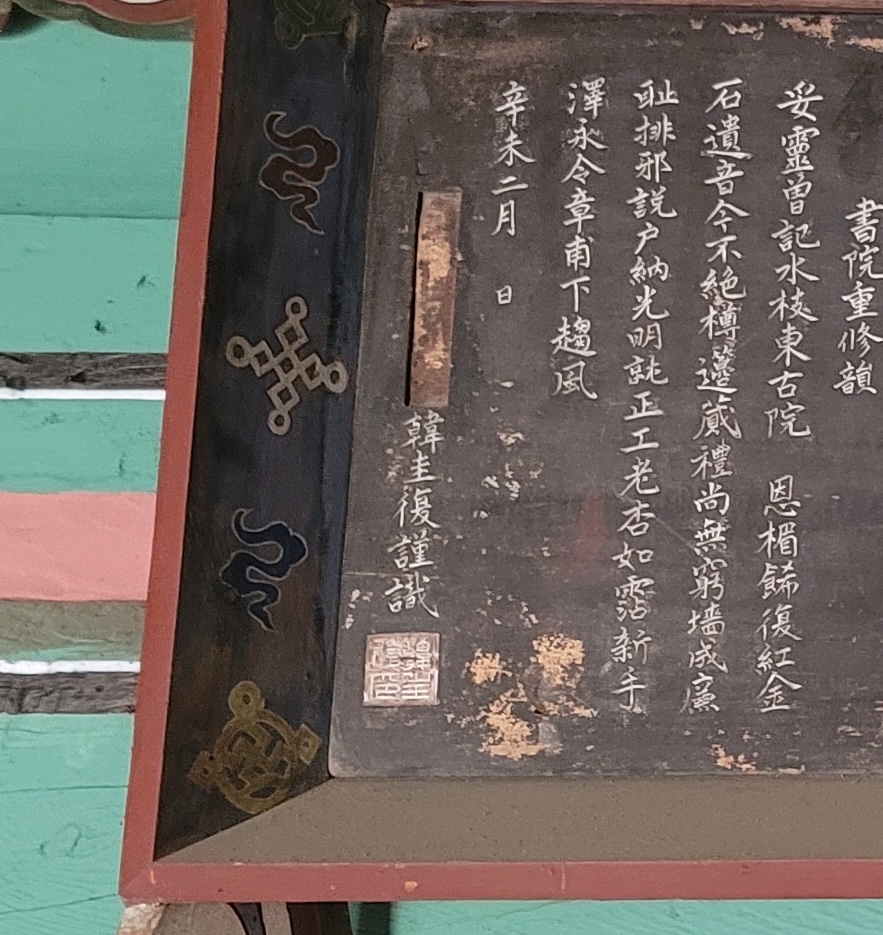 書院重修韻
妥靈曾記水枝東古院　恩楣餙復紅金
石遺音今不絶樽邊蔵禮尚無窮墻成廉
耻排邪説户納光明就正工老杏如霑新手
澤永令章甫下趨風
辛未二月　日
韓圭復謹識